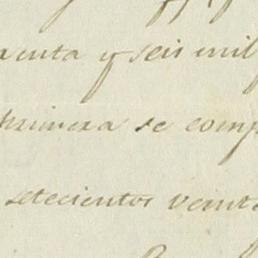 y seis mil
primera se comp
setecientos veint